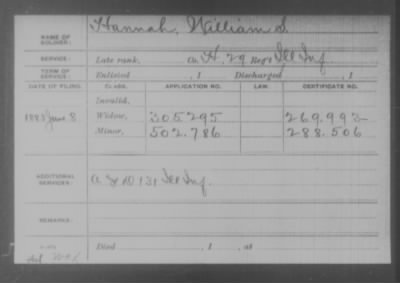 Hannah, William S.
NAME OF SOLDIER:
SERVICE: Late rank, Co. H, 29 Reg't Ill Inf.
TERM OF SERVICE: Enlisted , 1 Discharged , 1
DATE OF FILING. CLASS. APPLICATION NO. LAW. CERTIFICATE NO.
Invalid,
1883 June 8. Widow, 305295 269.993
Minor, 502.786 288.506
ADDITIONAL SERVICES: 131 Ill Inf.
REMARKS:
Died , 1 , at